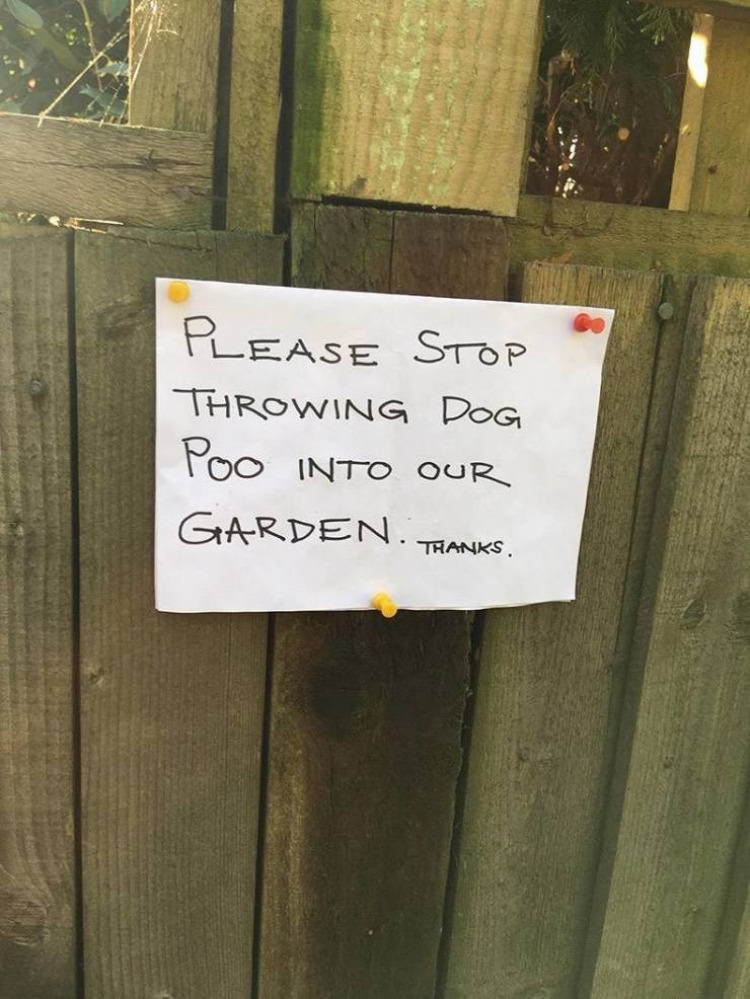 PLEASE STOP
THROWING DOG
POO INTO OUR
GARDEN. THANKS.